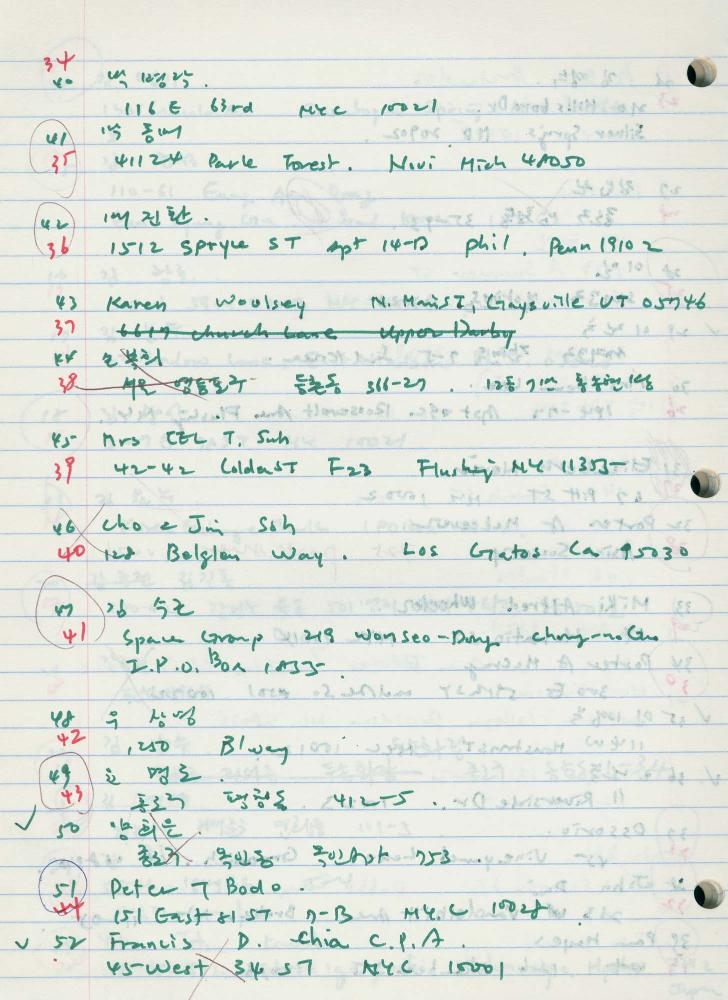 34
40 박명각.
116 E 63rd NYC 10021
41 박동
35 41124 Park Forest. Novi Mich 48050
42 진환.
36 1512 Spruce ST Apt 14-B phil. Penn 19102
43 Karen Woolsey N. Main ST, Gaysville VT 05746
37 6617 church Lane Upper Darby
44
38 서울 영등포구 등촌동 366-27. 12동
45 Mrs T. Suh
39 42-42 Colden ST F23 Flushing NY 11355
46 Jin Soh
40 128 Belglen Way. Los Gatos Ca 95030
47 김 수근
41 Space Group 219 Wonseo-Dong chong-no Gu
I.P.O. Box
48 우 상영
42 1,250 B'way
49 윤 명로.
43 종로구 평창동 412-5.
50 양희은.
종로구. 옥인동 옥인 753.
51 Peter T Bodo.
44 151 East 81 ST 7-B NY.C 10028
52 Francis D. Chia C.P.A.
45 West 34 ST NYC 10001